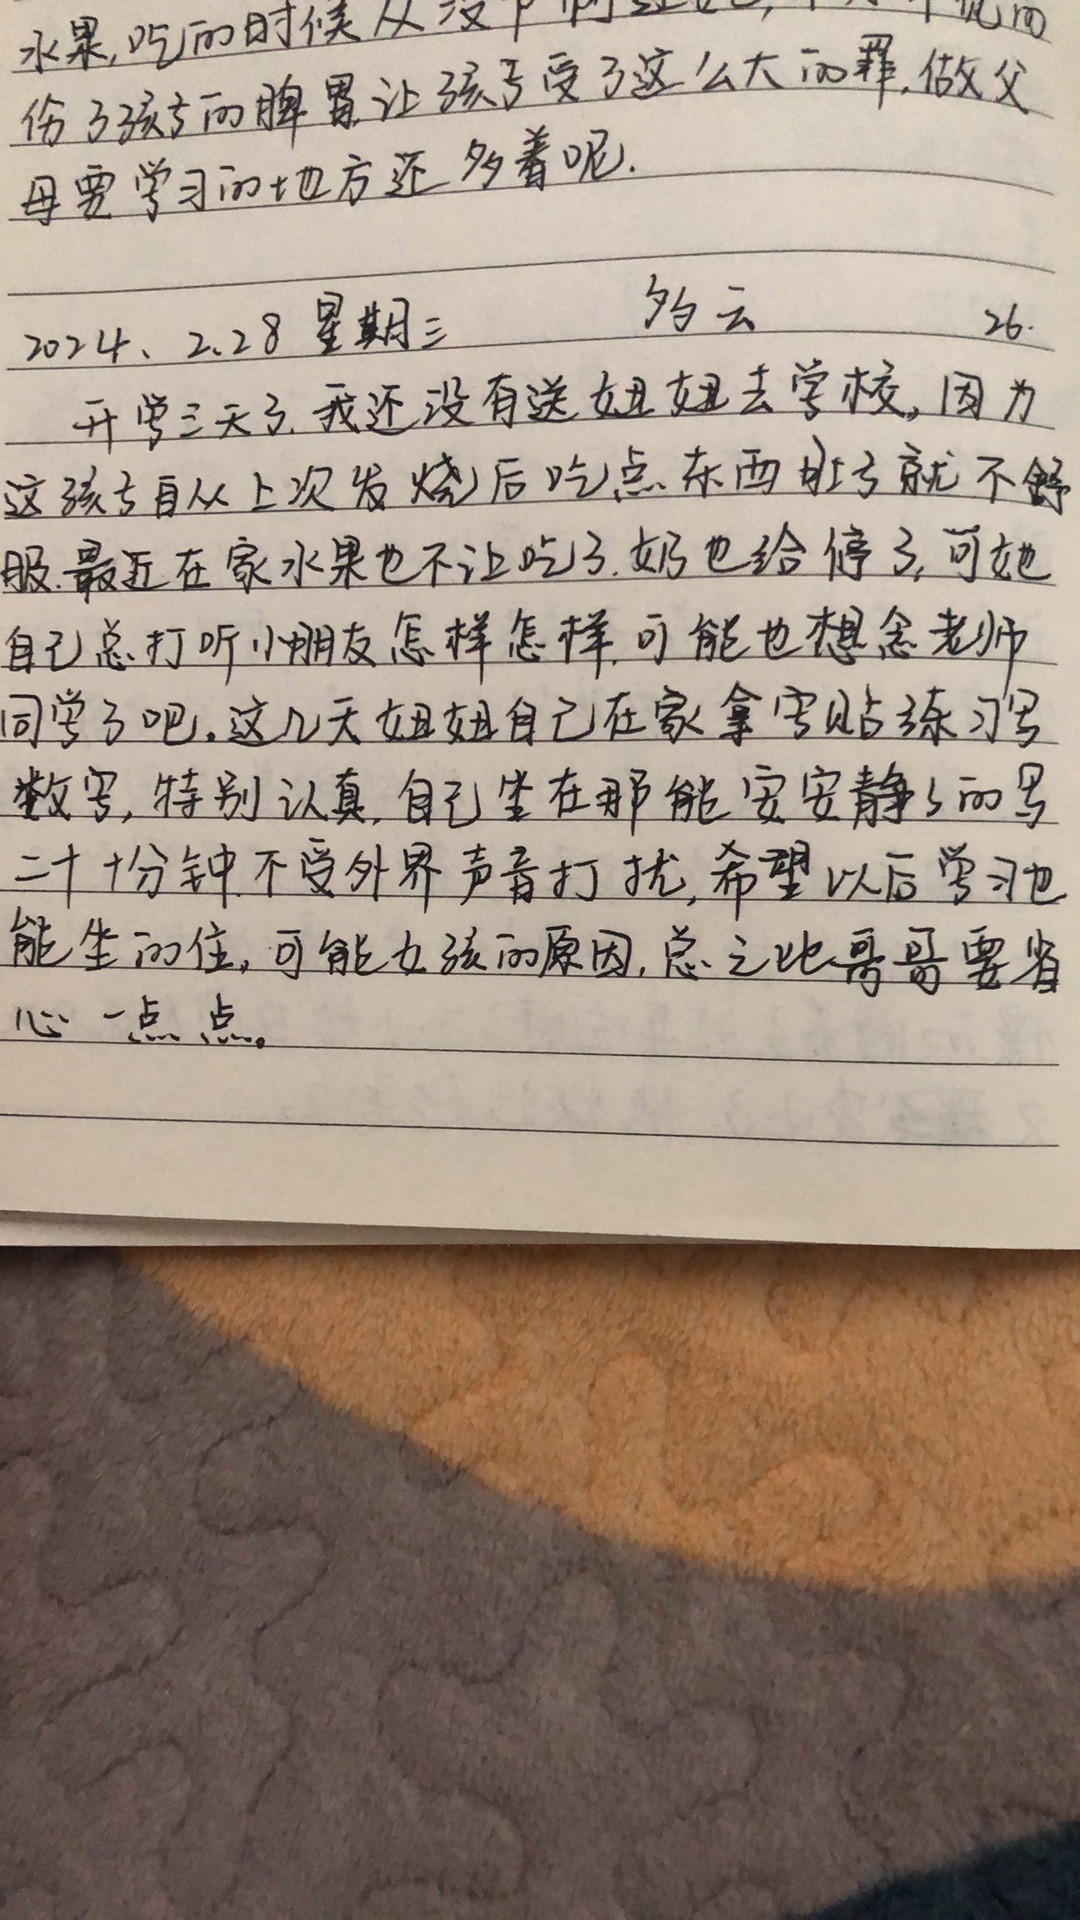 水果,吃的时候从没
伤了孩子的脾胃,让孩子受了这么大的罪,做父
母要学习的地方还多着呢.
2024、2.28 星期三 多云 26.
开学三天了.我还没有送妞妞去学校,因为
这孩子自从上次发烧后吃点东西肚子就不舒
服.最近在家水果也不让吃了.奶也给停了,可她
自己总打听小朋友怎样怎样,可能也想念老师
同学了吧。这几天妞妞自己在家拿字贴练习写
数字,特别认真,自己坐在那能安安静静的写
二十分钟,不受外界声音打扰,希望以后学习也
能坐的住,可能女孩的原因,总之比哥哥要省
心一点点。